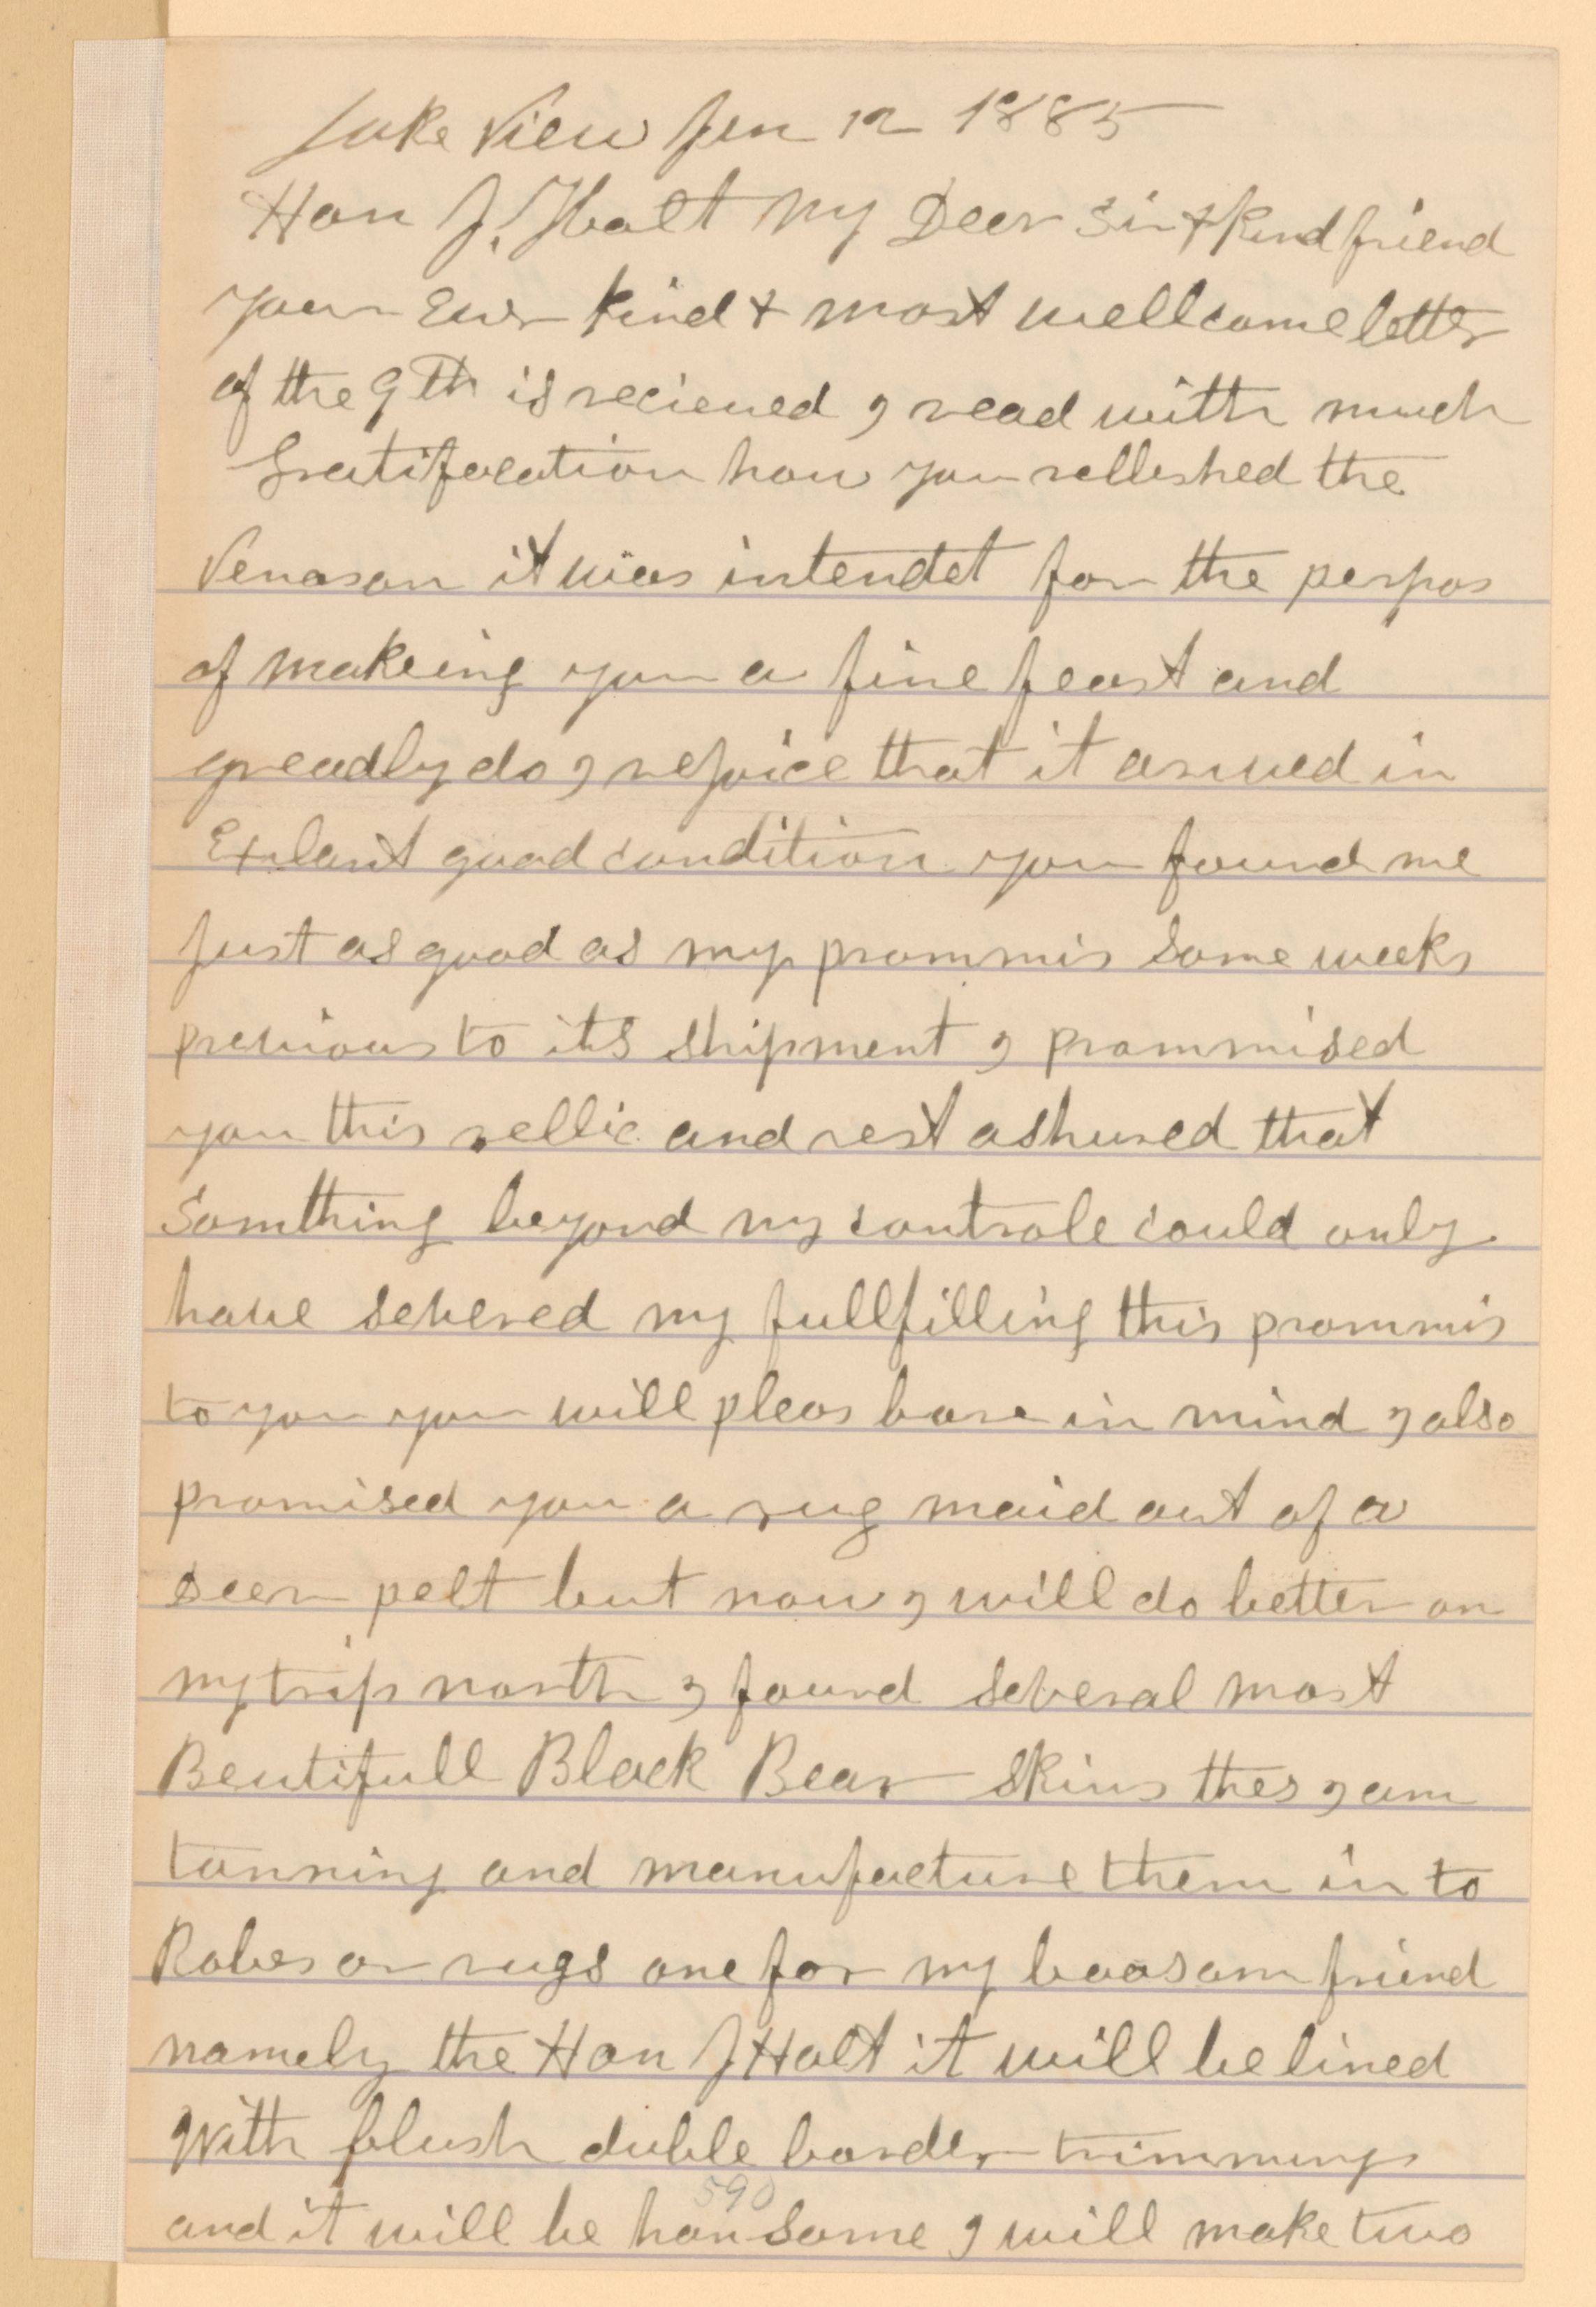 Lake View Jan 12 1885
Hon J. Hoalt My Deer Sir & kind friend
your Ever kind & most wellcome letter
of the 9th is recieved I read with much
Gratifacation how you rellished the
Venason it was intendet for the perpos
of makeing you a fine feast and
greadly do I rejoice that it arived in
Exlant good condition you found me
just as good as my prommis some weeks
previous to its shipment I prommised
you this rellic and rest ashured that
Somthing beyond my controle could only
have severed my fullfilling this prommis
to you you will pleas bare in mind I also
promised you a rug maid out of a
deer pelt but now I will do better on
my trip north I found several most
Beutifull Black Bear skins thes I am
tanning and manufacture them in to
Robes or rugs one for my boosom friend
namely the Hon J Holt it will be lined
With plush duble border trimmings
590
and it will be hansome I will make two